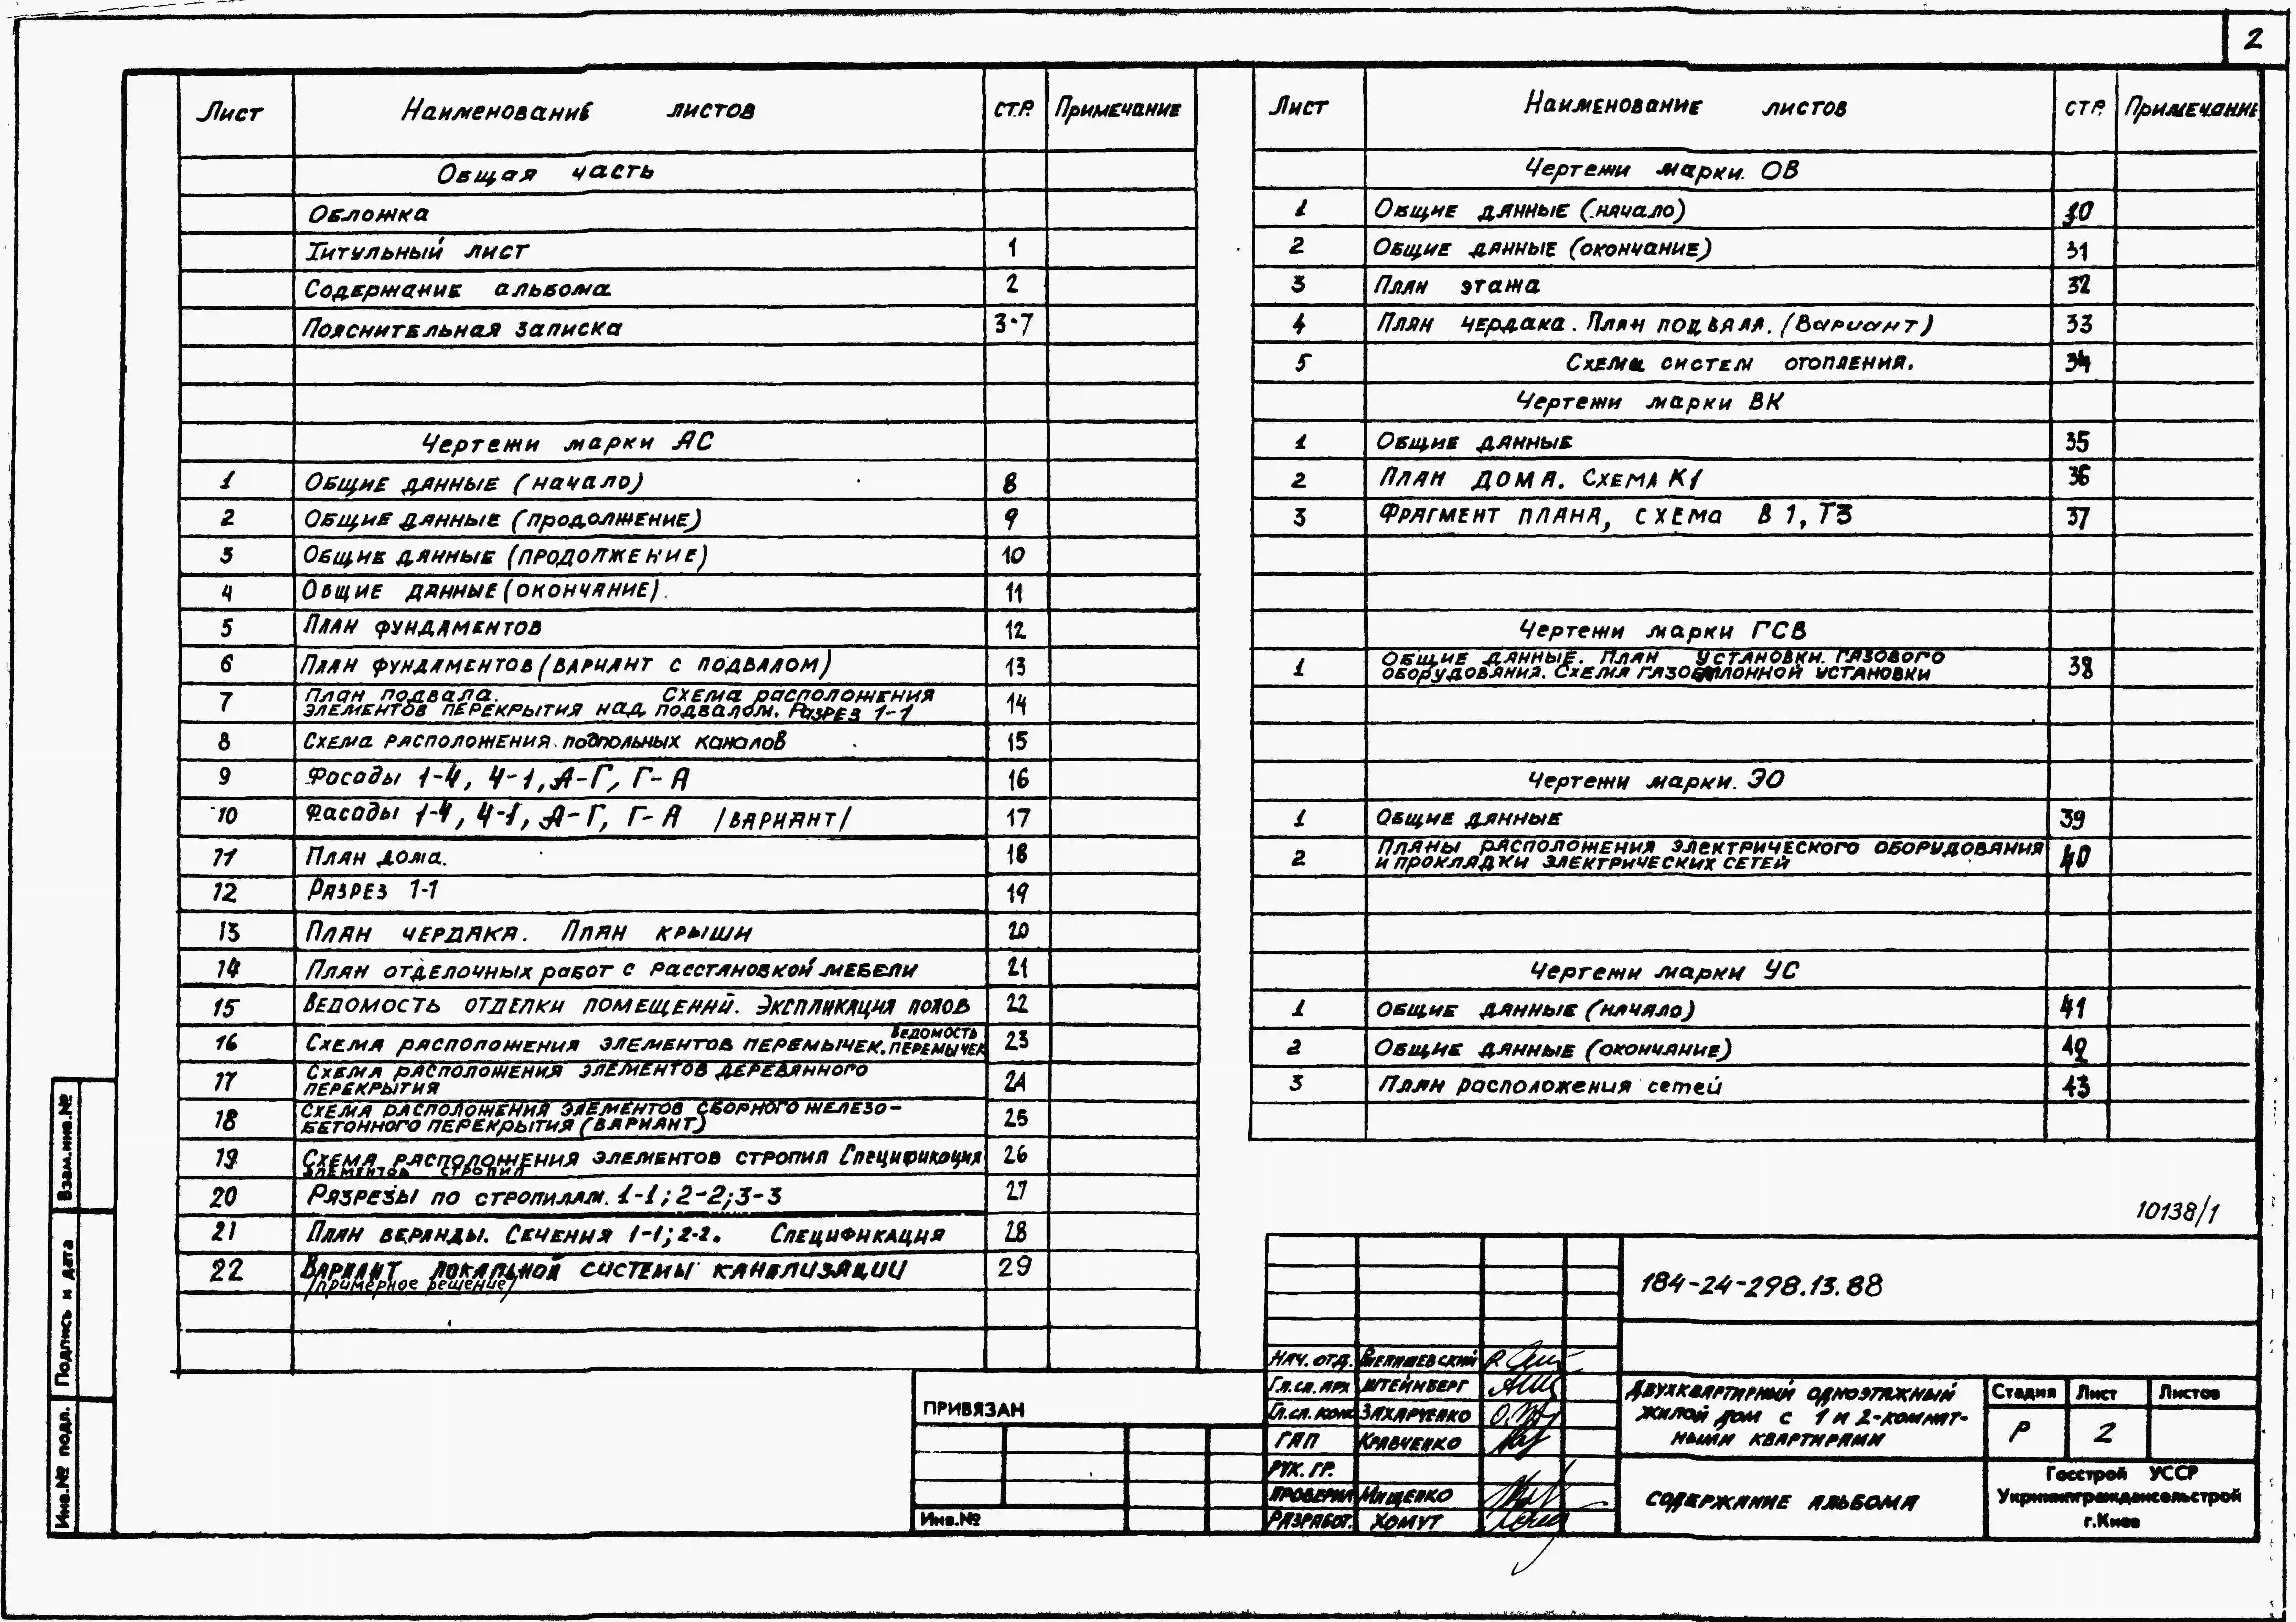 2
Лист Наименование листов стр. Примечание
Общая часть
Обложка
Титульный лист 1
Содержание альбома 2
Пояснительная записка 3-7
Чертежи марки АС
1 Общие данные (начало) 8
2 Общие данные (продолжение) 9
3 Общие данные (продолжение) 10
4 Общие данные (окончание). 11
5 План фундаментов 12
6 План фундаментов (вариант с подвалом) 13
7 План подвала. Схема расположения
элементов перекрытия над подвалом. Разрез 1-1 14
8 Схема расположения подпольных каналов 15
9 Фасады 1-4, 4-1, А-Г, Г-А 16
10 Фасады 1-4, 4-1, А-Г, Г-А /вариант/ 17
11 План дома. 18
12 Разрез 1-1 19
13 План чердака. План крыши 20
14 План отделочных работ с расстановкой мебели 21
15 Ведомость отделки помещений. Экспликация полов 22
16 Схема расположения элементов перемычек. Ведомость перемычек 23
17 Схема расположения элементов деревянного
перекрытия 24
18 Схема расположения элементов сборного железо-
бетонного перекрытия (вариант) 25
19 Схема расположения элементов стропил Спецификация
элементов стропил 26
20 Разрезы по стропилам. 1-1; 2-2; 3-3 27
21 План веранды. Сечения 1-1; 2-2. Спецификация 28
22 Вариант локальной системы канализации
/примерное решение/ 29
Лист Наименование листов стр. Примечание
Чертежи марки ОВ
1 Общие данные (начало) 30
2 Общие данные (окончание) 31
3 План этажа 32
4 План чердака. План подвала. (Вариант) 33
5 Схема систем отопления. 34
Чертежи марки ВК
1 Общие данные 35
2 План дома. Схема К1 36
3 Фрагмент плана, схема В1, Т3 37
Чертежи марки ГСВ
1 Общие данные. План установки газового
оборудования. Схема газобаллонной установки 38
Чертежи марки ЭО
1 Общие данные 39
2 Планы расположения электрического оборудования
и прокладки электрических сетей 40
Чертежи марки УС
1 Общие данные (начало) 41
2 Общие данные (окончание) 42
3 План расположения сетей 43
10138/1
184-24-298.13.88
Нач. отд.
Гл.сп. арх Штейнберг
Гл.сп. конс Захарченко
ГАП Кравченко
Рук. гр.
Проверил Мищенко
Разработ. Хомут
Двухквартирный одноэтажный
жилой дом с 1 и 2-комнат-
ными квартирами
Стадия Лист Листов
Р 2
Содержание альбома
Госстрой УССР
Укрниипграждансельстрой
г.Киев
ПРИВЯЗАН
Инв.№
Взам.инв.№
Подпись и дата
Инв.№ подл.